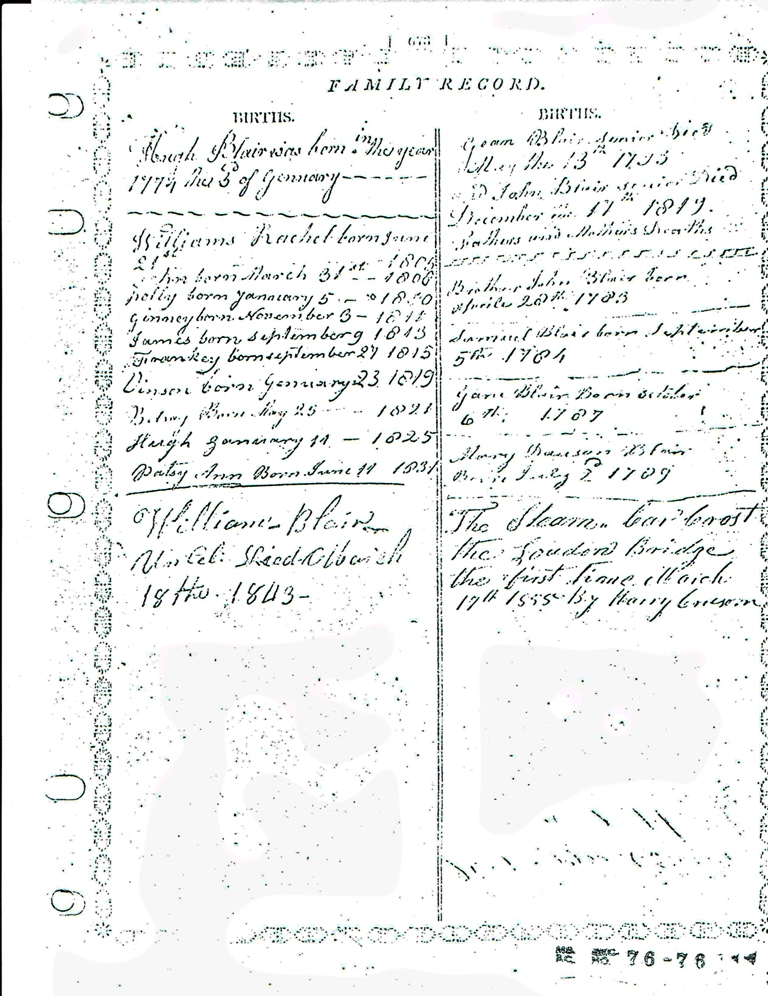 FAMILY RECORD.
BIRTHS.
Hugh Blair was born in the year
1774 the 3d of Gennary
Williams Rachel born June
21st 1805
John born March 31st 1806
polly born January 5
Ginney born November 3
James born September 9 1813
Frankey born september 27 1815
Vinson born Gennary 23 1819
Betsey Born May 25 1821
Hugh January 11 1825
Patsy Ann Born June 11 1831
William Blair
18the 1843
BIRTHS.
Blair senior Died
May the 13th
John Blair senior Died
December the 17th 1819.
Fathers and Mothers Deaths
Brother John Blair born
Aprile 28th 1783
Samuel Blair born September
5th 1784
Jane Blair Born october
6th 1787
Mary Blair
Born July 2d 1789
The Steam Car Crost
the Loudon Bridge
the first time March
17th 1855 By Harry
76-76